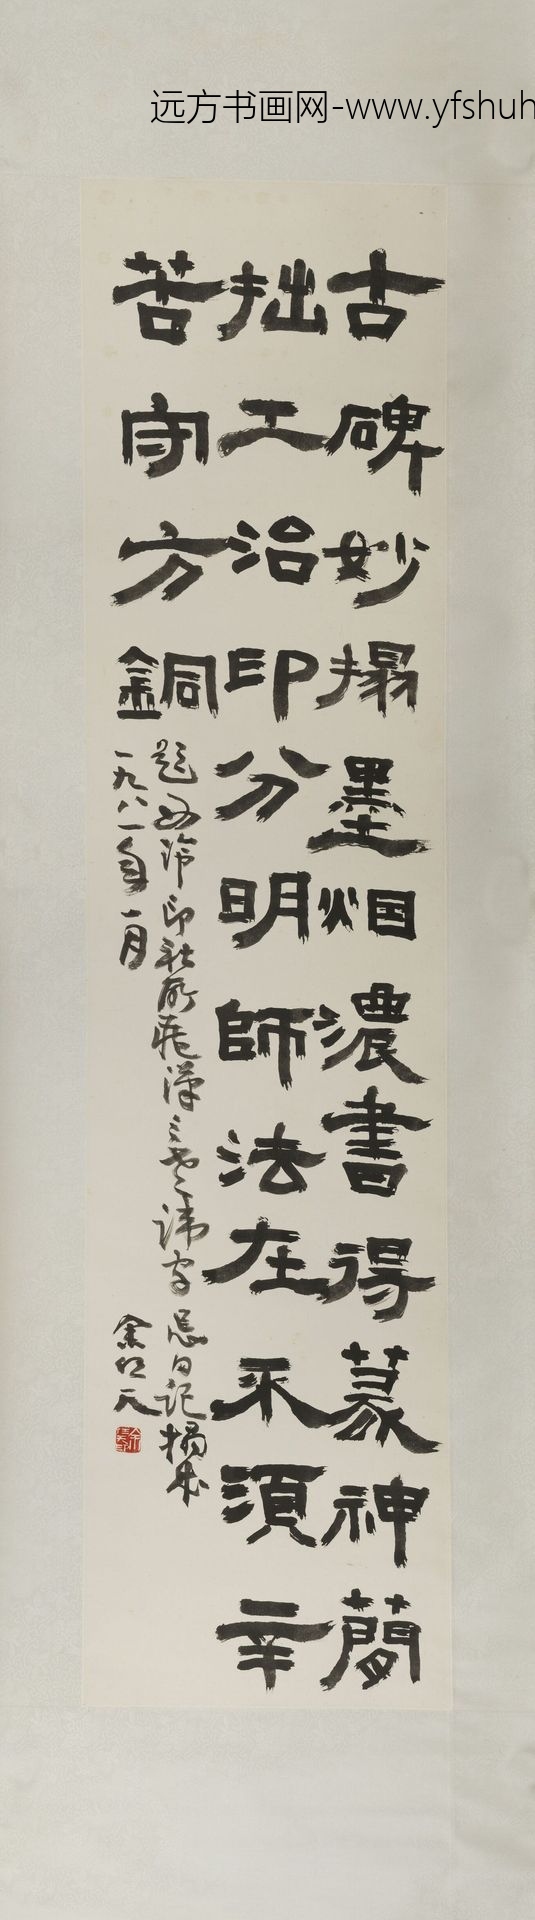 远方书画网-www.yfshuh
古碑妙搨墨烟濃書得篆神蕳
拙工治印分明師法在不須辛
苦守方銅
題西泠印社所藏漢三老諱字忌日記搨本
一九八一年一月
余任天